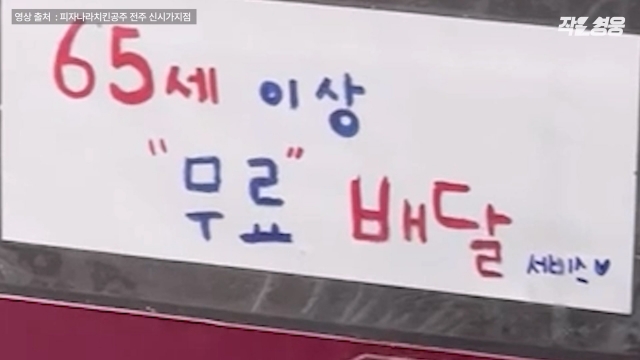 영상 출처 : 피자나라치킨공주 전주 신시가지점
작은영웅
65세 이상
"무료" 배달 서비스♥